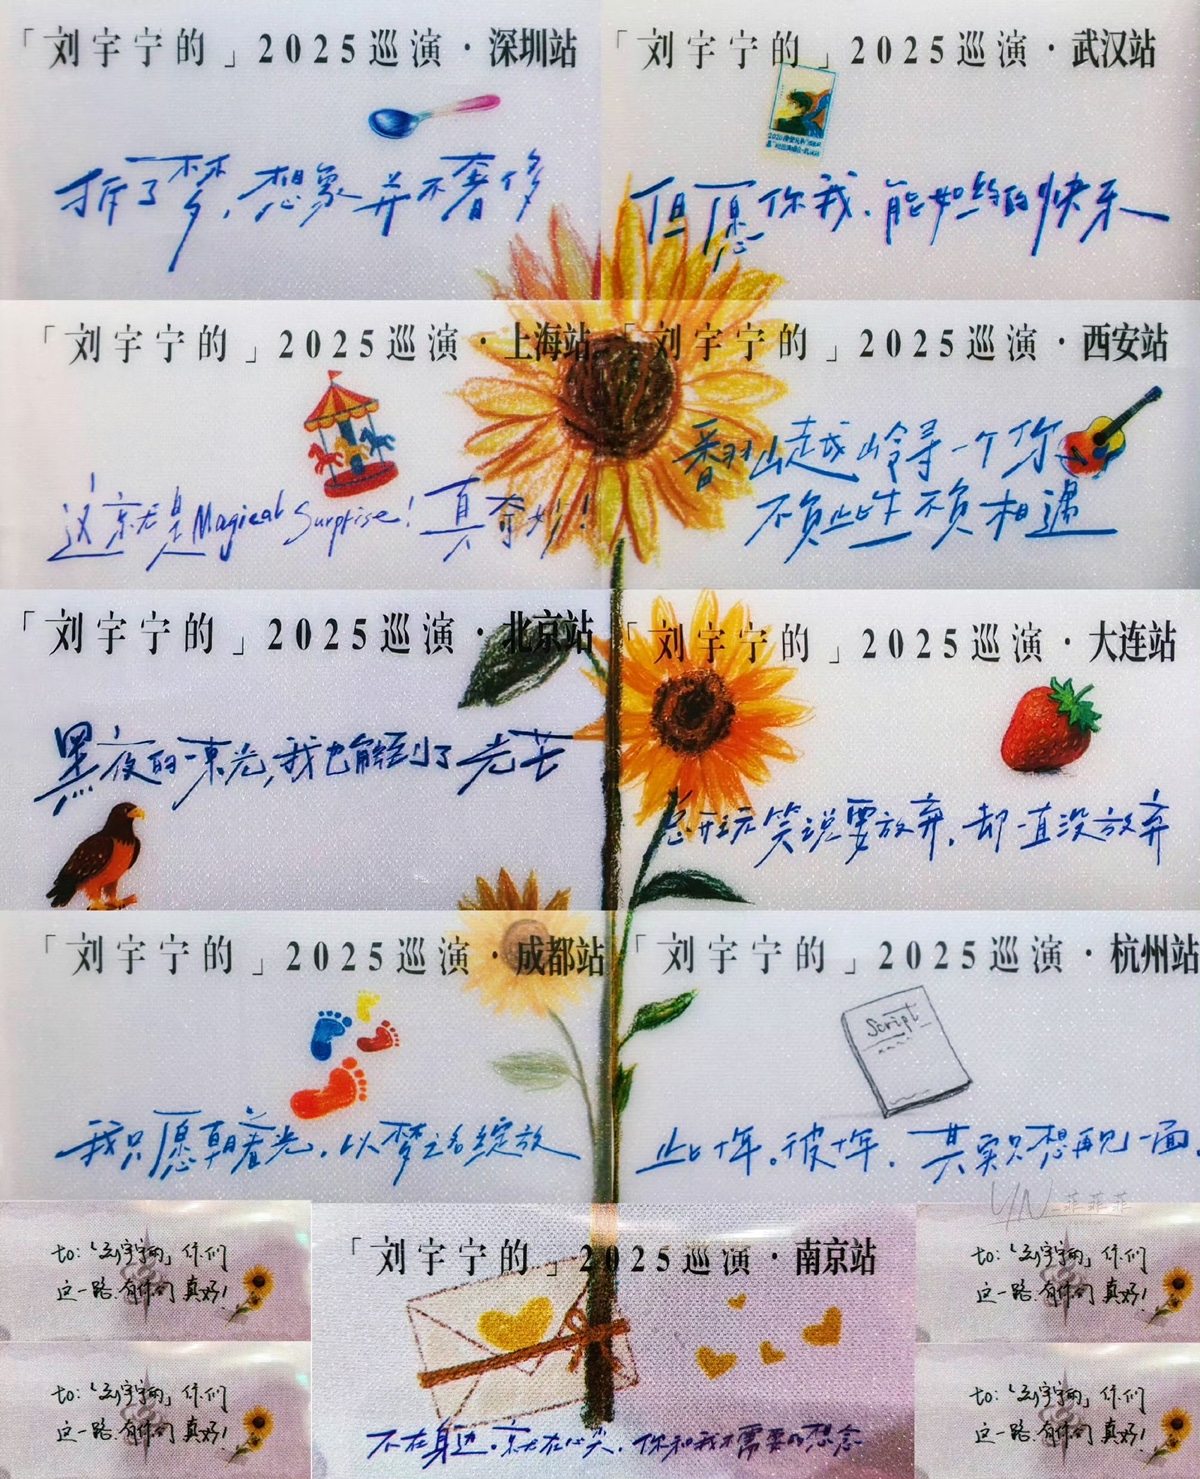 「刘宇宁的」2025巡演·深圳站
拆了梦，想象并不奢侈
「刘宇宁的」2025巡演·武汉站
但愿你我，能如约的快乐
「刘宇宁的」2025巡演·上海站
这就是Magical Surprise！真奇妙！
「刘宇宁的」2025巡演·西安站
翻山越岭寻一个你
不负此生不负相遇
「刘宇宁的」2025巡演·北京站
黑夜的一束光，我也能到了光芒
「刘宇宁的」2025巡演·大连站
总开玩笑说要放弃，却一直没放弃
「刘宇宁的」2025巡演·成都站
我只愿朝着光，以梦之名绽放
「刘宇宁的」2025巡演·杭州站
Script
此十年。彼十年，其实只想再见一面。
YN_菲菲菲
「刘宇宁的」2025巡演·南京站
不在身边，就在心尖，你和我不需要的想念
to:「刘宇宁的」你们
这一路，有你们真好！
to:「刘宇宁的」你们
这一路，有你们真好！
to:「刘宇宁的」你们
这一路，有你们真好！
to:「刘宇宁的」你们
这一路，有你们真好！